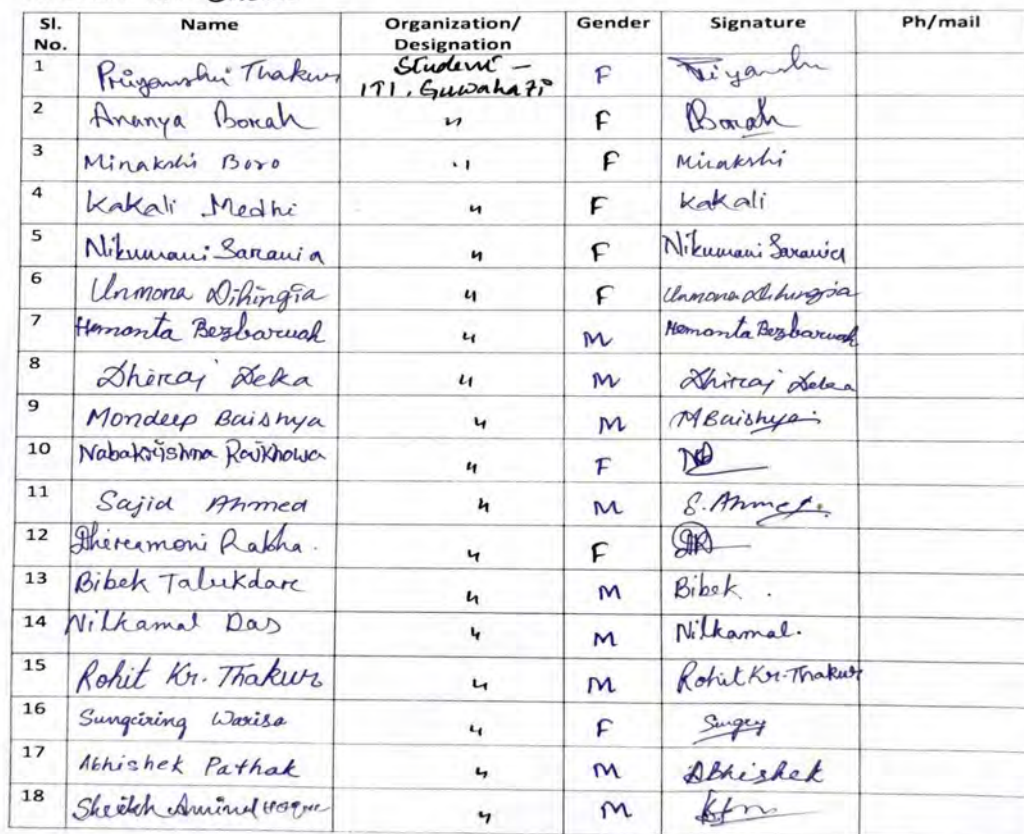 Sl. No. Name Organization/ Designation Gender Signature Ph/mail
1 Priyanshi Thakur Student - ITI, Guwahati F Priyanshi
2 Ananya Borah " F Borah
3 Minakshi Boro " F Minakshi
4 Kakali Medhi " F Kakali
5 Nikumani Sarania " F Nikumani Sarania
6 Unmona Dihingia " F Unmona Dihingia
7 Hemanta Bezbaruah " M Hemanta Bezbaruah
8 Dhiraj Deka " M Dhiraj Deka
9 Mondeep Baishya " M MBaishya
10 Nabakrishna Raikhowa " F
11 Sajid Ahmed " M S. Ahmed.
12 Dhireamoni Rabha. " F DR
13 Bibek Talukdare " M Bibek .
14 Nilkamal Das " M Nilkamal.
15 Rohit Kr. Thakur " M Rohit Kr. Thakur
16 Sungciring Warisa " F
17 Abhishek Pathak " M Abhishek
18 Sheikh Aminul Hoque " M